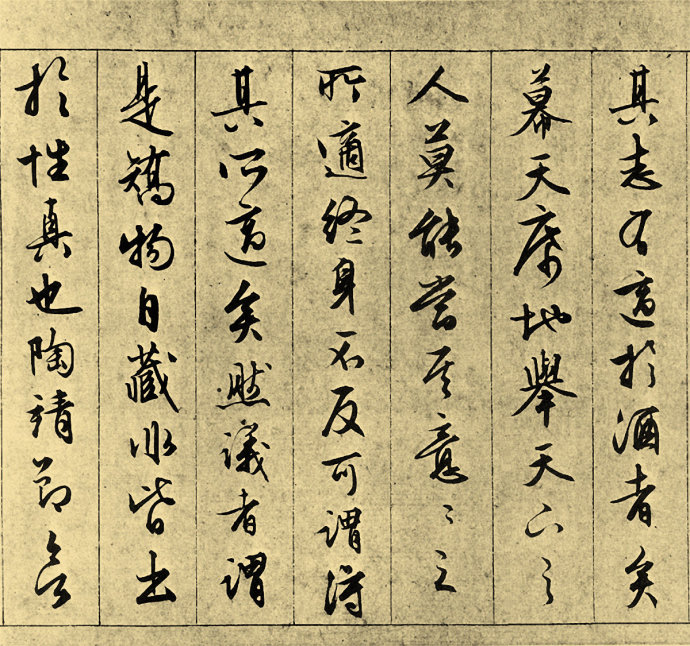 其志有適於酒者矣
幕天席地舉天下之
人莫能嘗其意意之
所適終身不反可謂得
其所適矣然議者謂
是矯物自藏非皆出
於性真也陶靖節